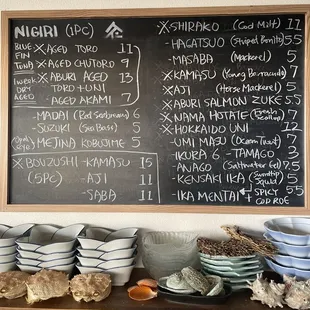 NIGIRI (1PC)
BLUE FIN TUNA
1 WEEK DRY AGED
X AGED TORO 11
X AGED CHUTORO 9
X ABURI AGED TORO + UNI 13
AGED AKAMI 7
- MADAI (Red Seabream) 6
- SUZUKI (Sea Bass) 5
- MEJINA KOBUJIME 5
X BOUZUSHI - KAMASU 15
(5PC) - AJI 11
- SABA 11
X SHIRAKO (Cod Milt) 11
- HAGATSUO (Striped Bonito) 5.5
- MASABA (Mackerel) 5
X KAMASU (Young Barracuda) 7
X AJI (Horse Mackerel) 5
X ABURI SALMON ZUKE 5.5
X NAMA HOTATE (Fresh Scallop) 7
X HOKKAIDO UNI 12
- UMI MASU (Ocean Trout) 7
- IKURA 6 - TAMAGO 3
- ANAGO (Saltwater Eel) 7.5
- KENSAKI IKA (Swordtip Squid) 5
- IKA MENTAI + SPICY COD ROE 5.5